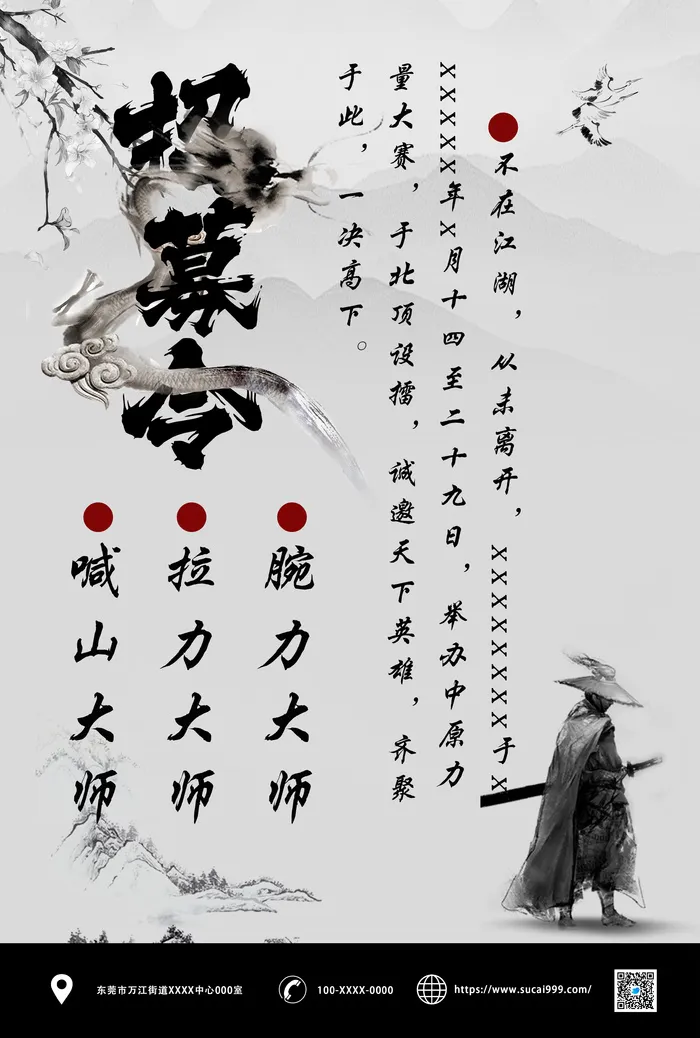 招募令
不在江湖，从未离开，XXXXXXXXX于X
XXXXX年X月十四至二十九日，举办中原力
量大赛，于北顶设擂，诚邀天下英雄，齐聚
于此，一决高下。
腕力大师
拉力大师
喊山大师
东莞市万江街道XXXX中心000室
100-XXXX-0000
https://www.sucai999.com/